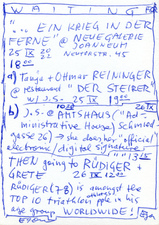 WAITING FOR
"... EIN KRIEG IN DER
FERNE" @ NEUE GALERIE
JOANNEUM
25 IX 20 21 NEUTORGS. 45
18 00
a) Tanja + Othmar REININGER
@ restaurant "DER STEIRER"
W.J.S. 25 IX 19 00
b) J.S. @ AMTSHAUS ("Administrative House) Schmied-
gasse 26) → she does her official
electronic/digital signature"
THEN going to RÜDIGER +
GRETE 26 IX 12 00
RÜDIGER (78) is amongst the
TOP 10 triathlon ppl in his
age group WORLDWIDE!